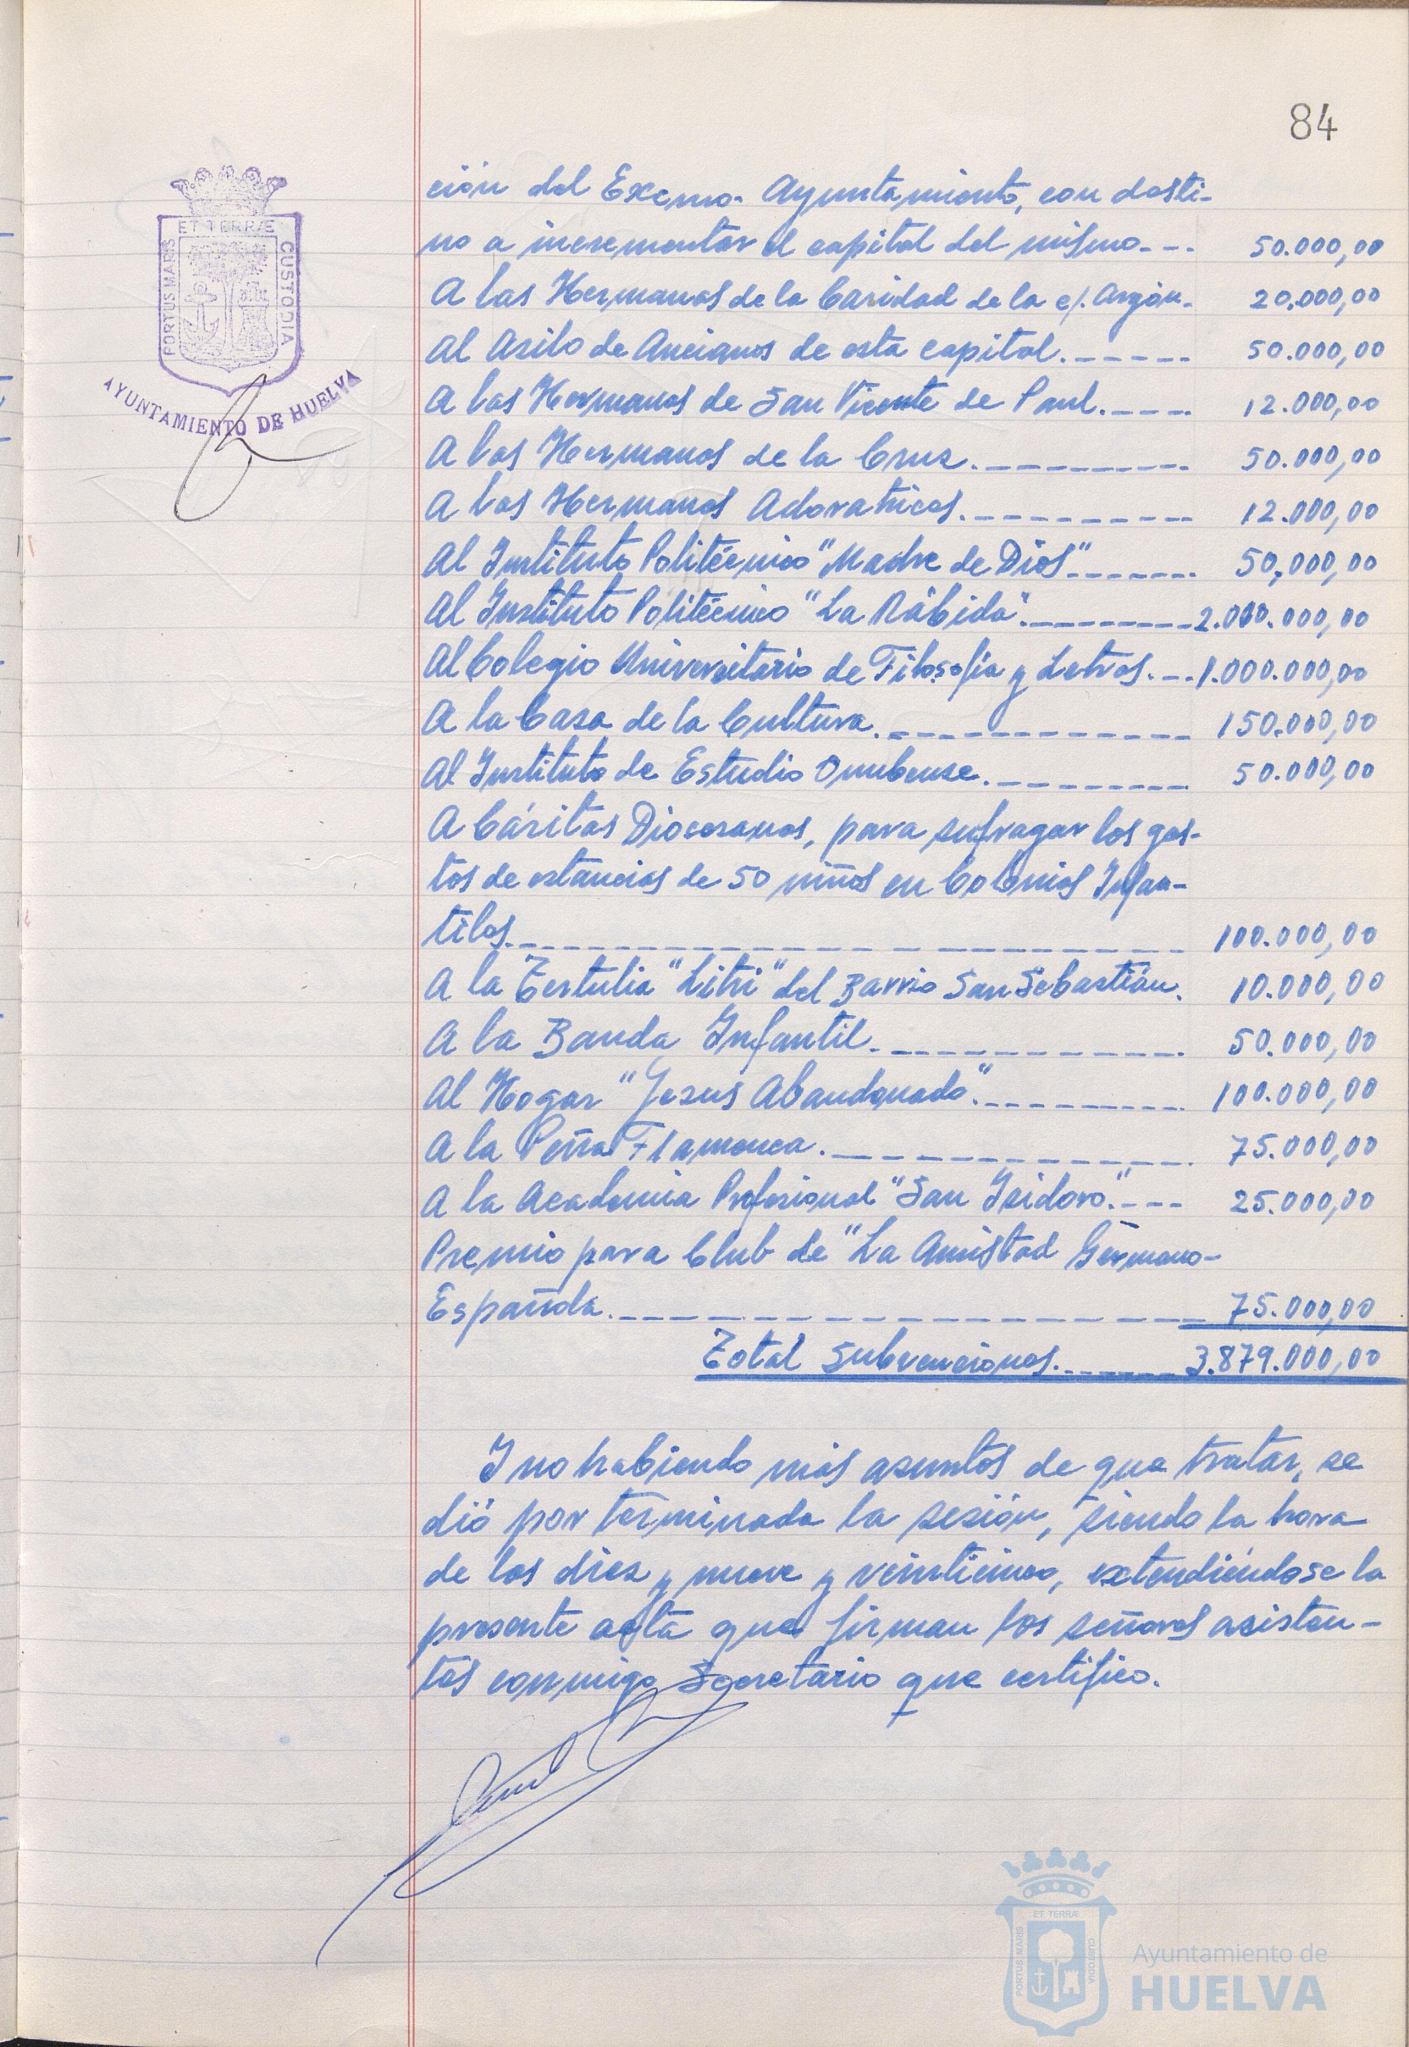 84
PORTUS MARIS
ET TERRÆ
CUSTODIA
AYUNTAMIENTO DE HUELVA
ción del Excmo. Ayuntamiento, con desti-
no a incrementar el capital del mismo--- 50.000,00
A las Hermanas de la Caridad de la c/. Argón. 20.000,00
Al Asilo de Ancianos de esta capital.----- 50.000,00
A las Hermanas de San Vicente de Paul.---- 12.000,00
A las Hermanas de la Cruz.--------- 50.000,00
A las Hermanas Adoratrices.---------- 12.000,00
Al Instituto Politécnico "Madre de Dios"------- 50.000,00
Al Instituto Politécnico "La Rábida".--------- 2.000.000,00
Al Colegio Universitario de Filosofía y Letras.-- 1.000.000,00
A la Casa de la Cultura.------------- 150.000,00
Al Instituto de Estudio Onubense.--------- 50.000,00
A Cáritas Diocesanas, para sufragar los gas-
tos de estancias de 50 niños en Colonias Infan-
tiles.------------------------ 100.000,00
A la Tertulia "Litri" del Barrio San Sebastián. 10.000,00
A la Banda Infantil.------------ 50.000,00
Al Hogar "Jesus Abandonado".--------- 100.000,00
A la Peña Flamenca.------------- 75.000,00
A la Academia Profesional "San Isidoro".--- 25.000,00
Premio para Club de "La Amistad Germano-
Española.-------------------- 75.000,00
Total Subvenciones.------ 3.879.000,00
Y no habiendo más asuntos de que tratar, se
dió por terminada la sesión, siendo la hora
de las diez y nueve y veinticinco, extendiéndose la
presente acta que firman los señores asisten-
tes conmigo Secretario que certifico.
ET TERRÆ
PORTUS MARIS
CUSTODIA
Ayuntamiento de
HUELVA